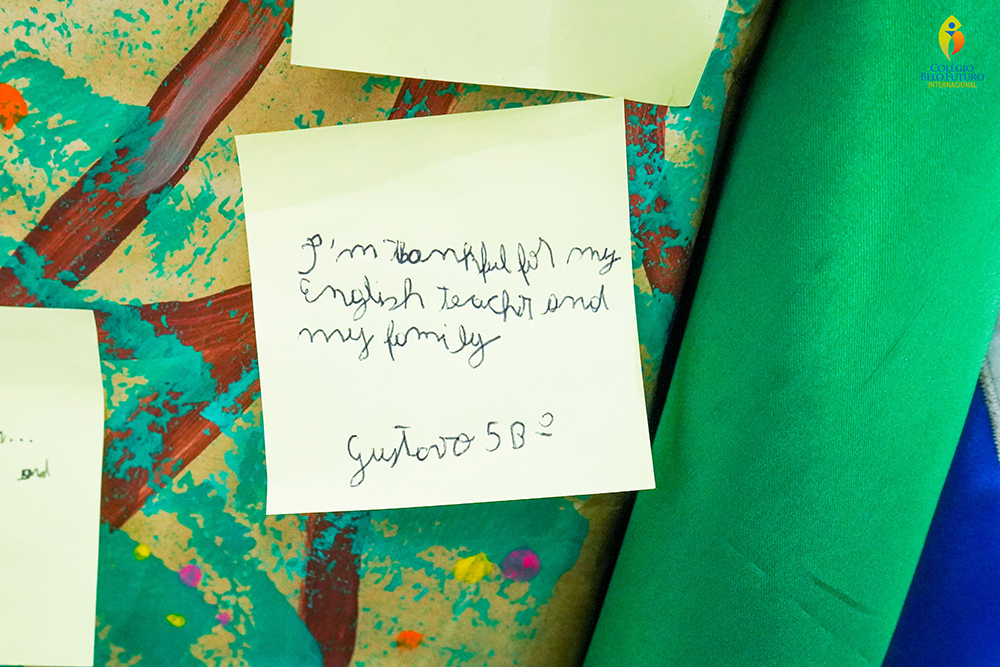 COLÉGIO
BELO FUTURO
INTERNACIONAL
I'm thankful for my
English teacher and
my family
Gustavo 5Bº
and